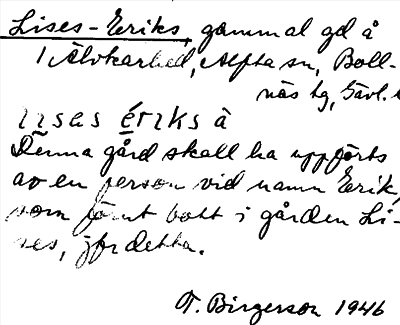 Lises-Eriks, gammal gd å
1 Älvkarhed, Alfta sn, Boll-
näs tg, Gävl.
lisas ériks à
Denna gård skall ha uppförts
av en person vid namn Erik,
som förut bott i gården Li-
ses, jfr detta.
T. Birgerson 1946